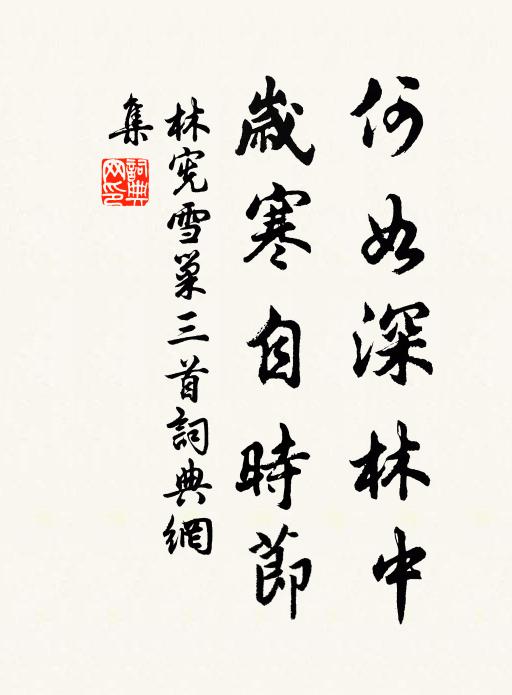 何如深林中
歲寒自時節
林宪雪巢三首詞典網
集
詞典
网印